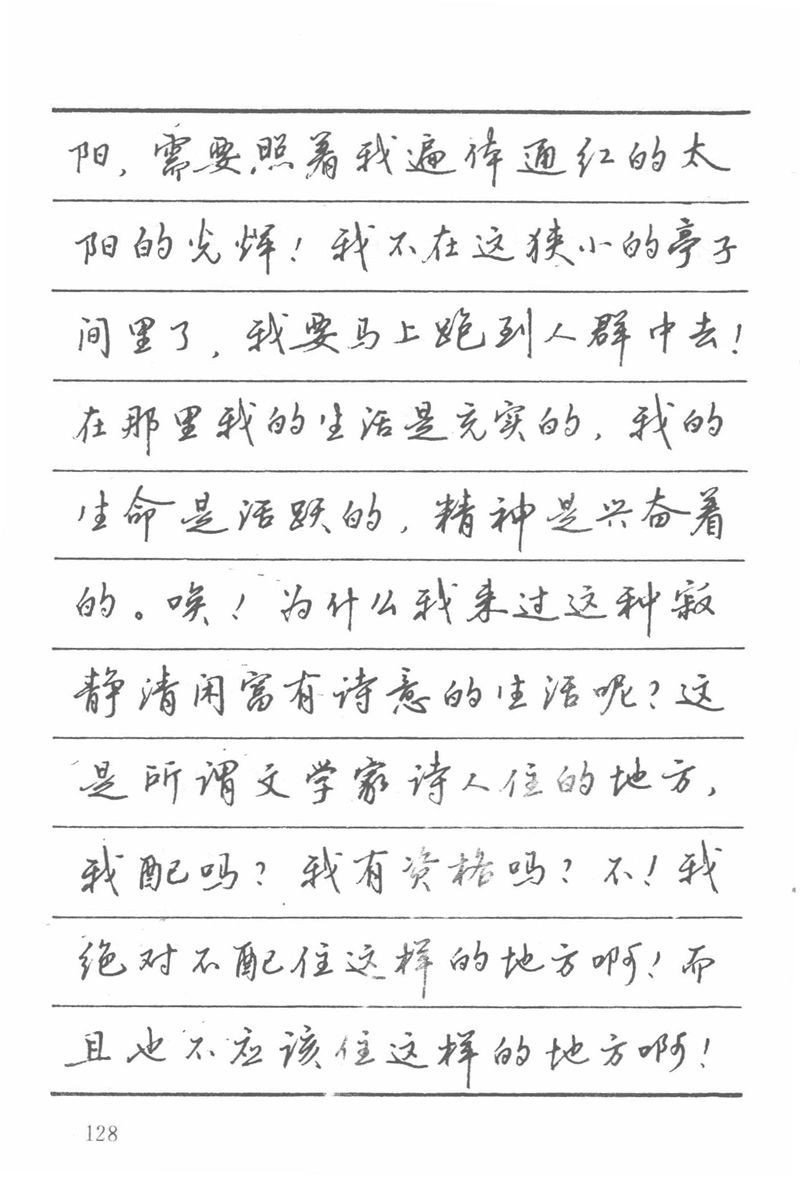 阳，需要照着我遍体通红的太
阳的光辉！我不在这狭小的亭子
间里了，我要马上跑到人群中去！
在那里我的生活是充实的，我的
生命是活跃的，精神是兴奋着
的。唉！为什么我来过这种寂
静清闲富有诗意的生活呢？这
是所谓文学家诗人住的地方，
我配吗？我有资格吗？不！我
绝对不配住这样的地方啊！而
且也不应该住这样的地方啊！
128